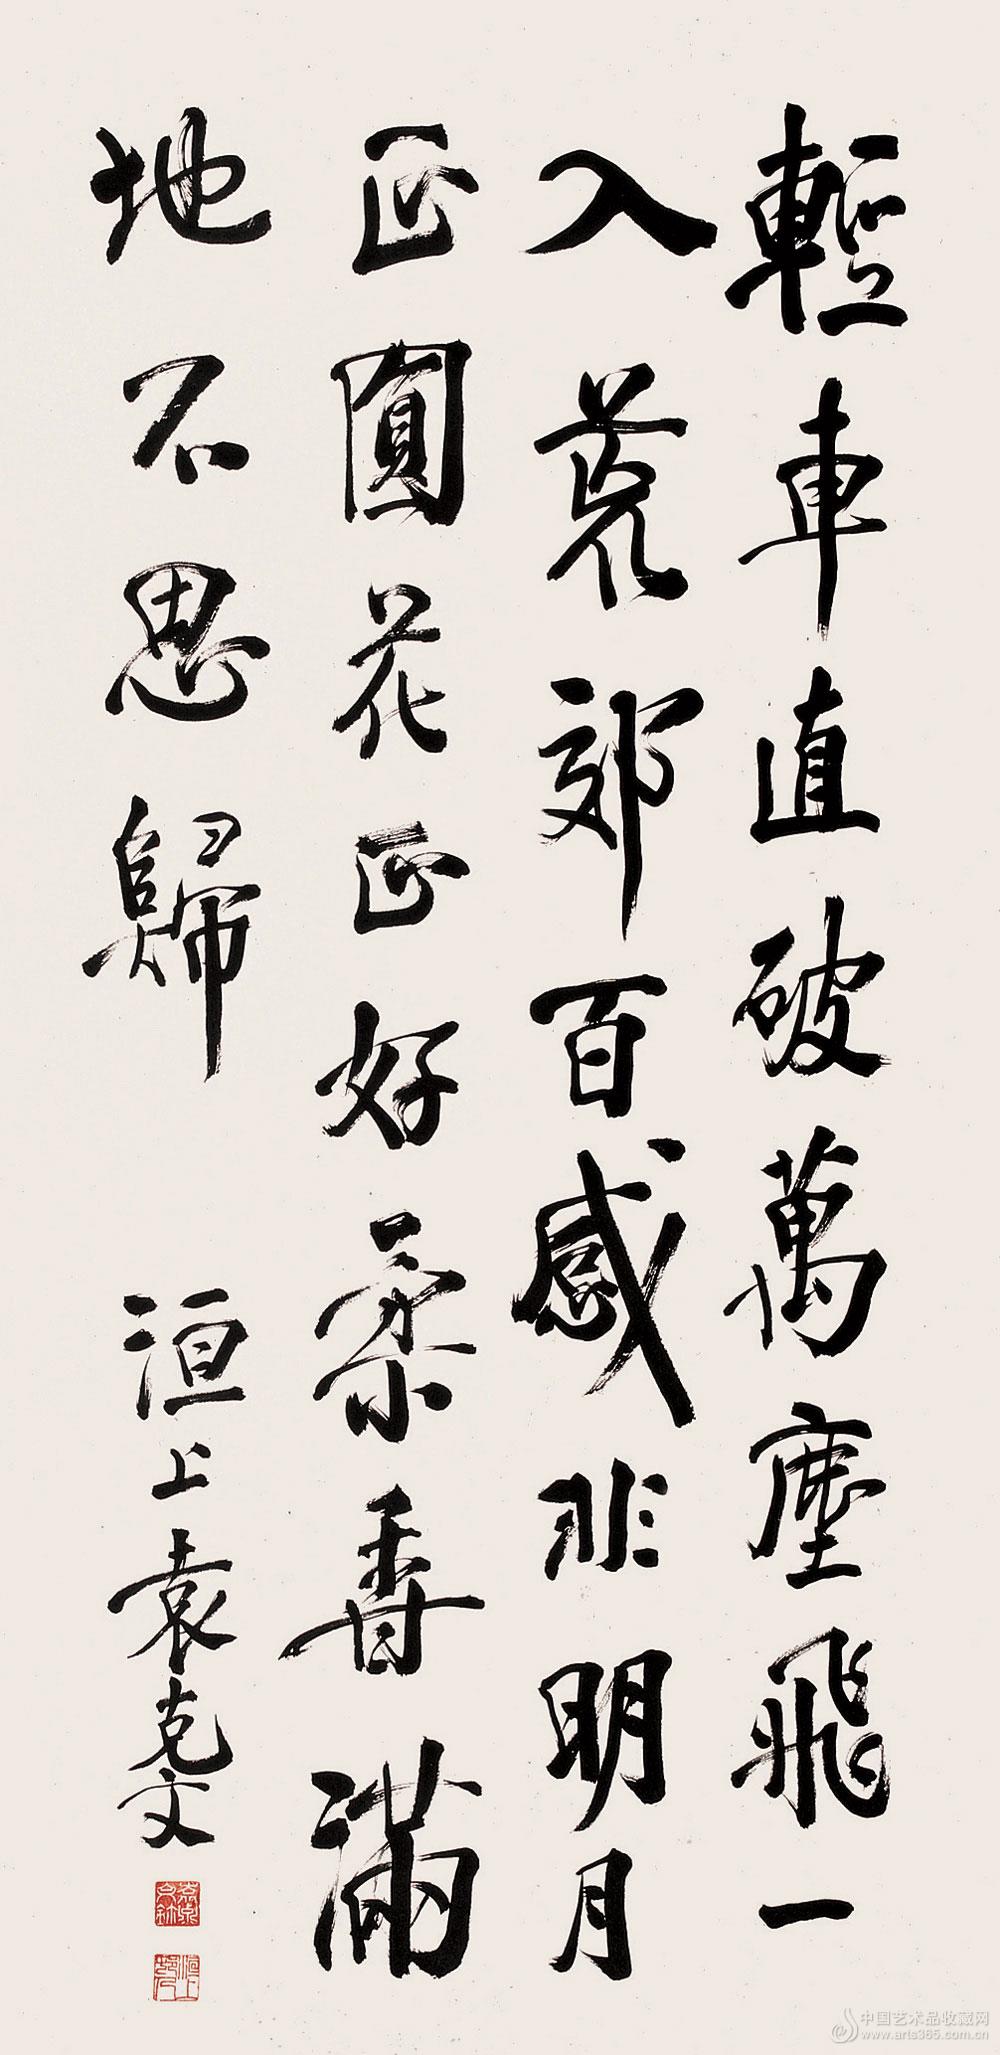 輕車直破萬塵飛一
入荒郊百感非明月
正圓花正好柔香滿
地不思歸
洹上袁克文
中国艺术品收藏网
www.arts365.com.cn